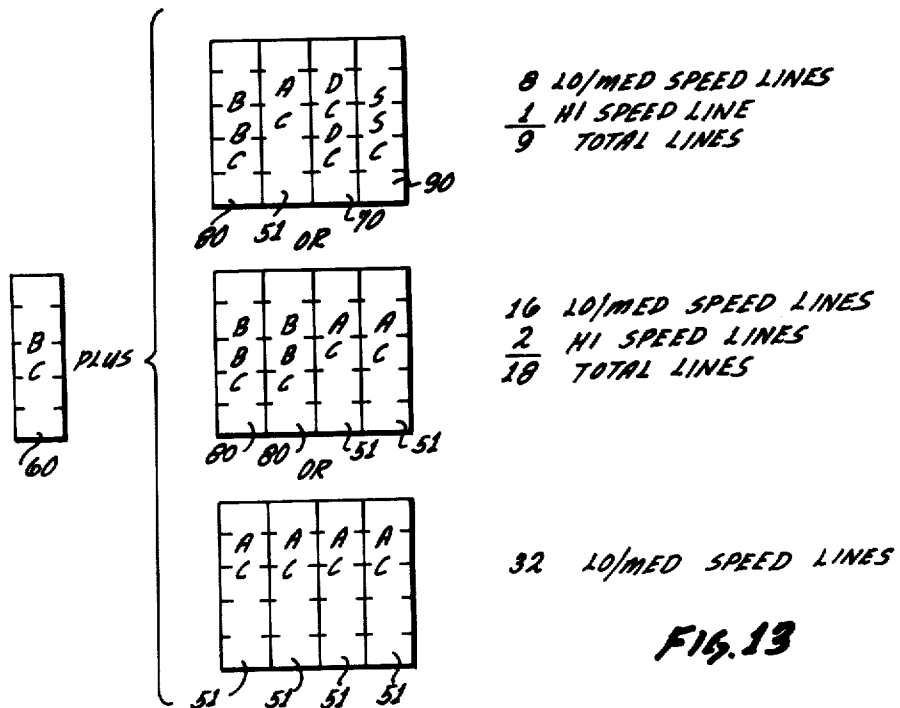 B B C
A C
D C D C
S S C
80
51
70
90
8 LO/MED SPEED LINES
1 HI SPEED LINE
9 TOTAL LINES
OR
B C
60
PLUS
B B C
B B C
A C
A C
80
80
51
51
16 LO/MED SPEED LINES
2 HI SPEED LINES
18 TOTAL LINES
OR
A C
A C
A C
A C
51
51
51
51
32 LO/MED SPEED LINES
FIG. 13